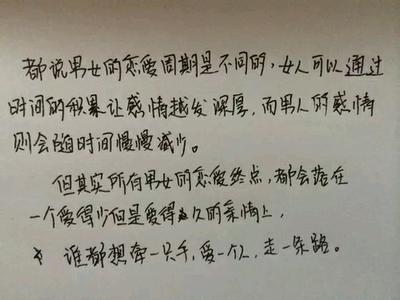 都说男女的恋爱周期是不同的，女人可以通过
时间的积累让感情越发深厚，而男人的感情
则会随时间慢慢减少。
但其实所有男女的恋爱终点，都会落在
一个爱得少但是爱得久的亲情上，
谁都想牵一只手，爱一个人，走一条路。